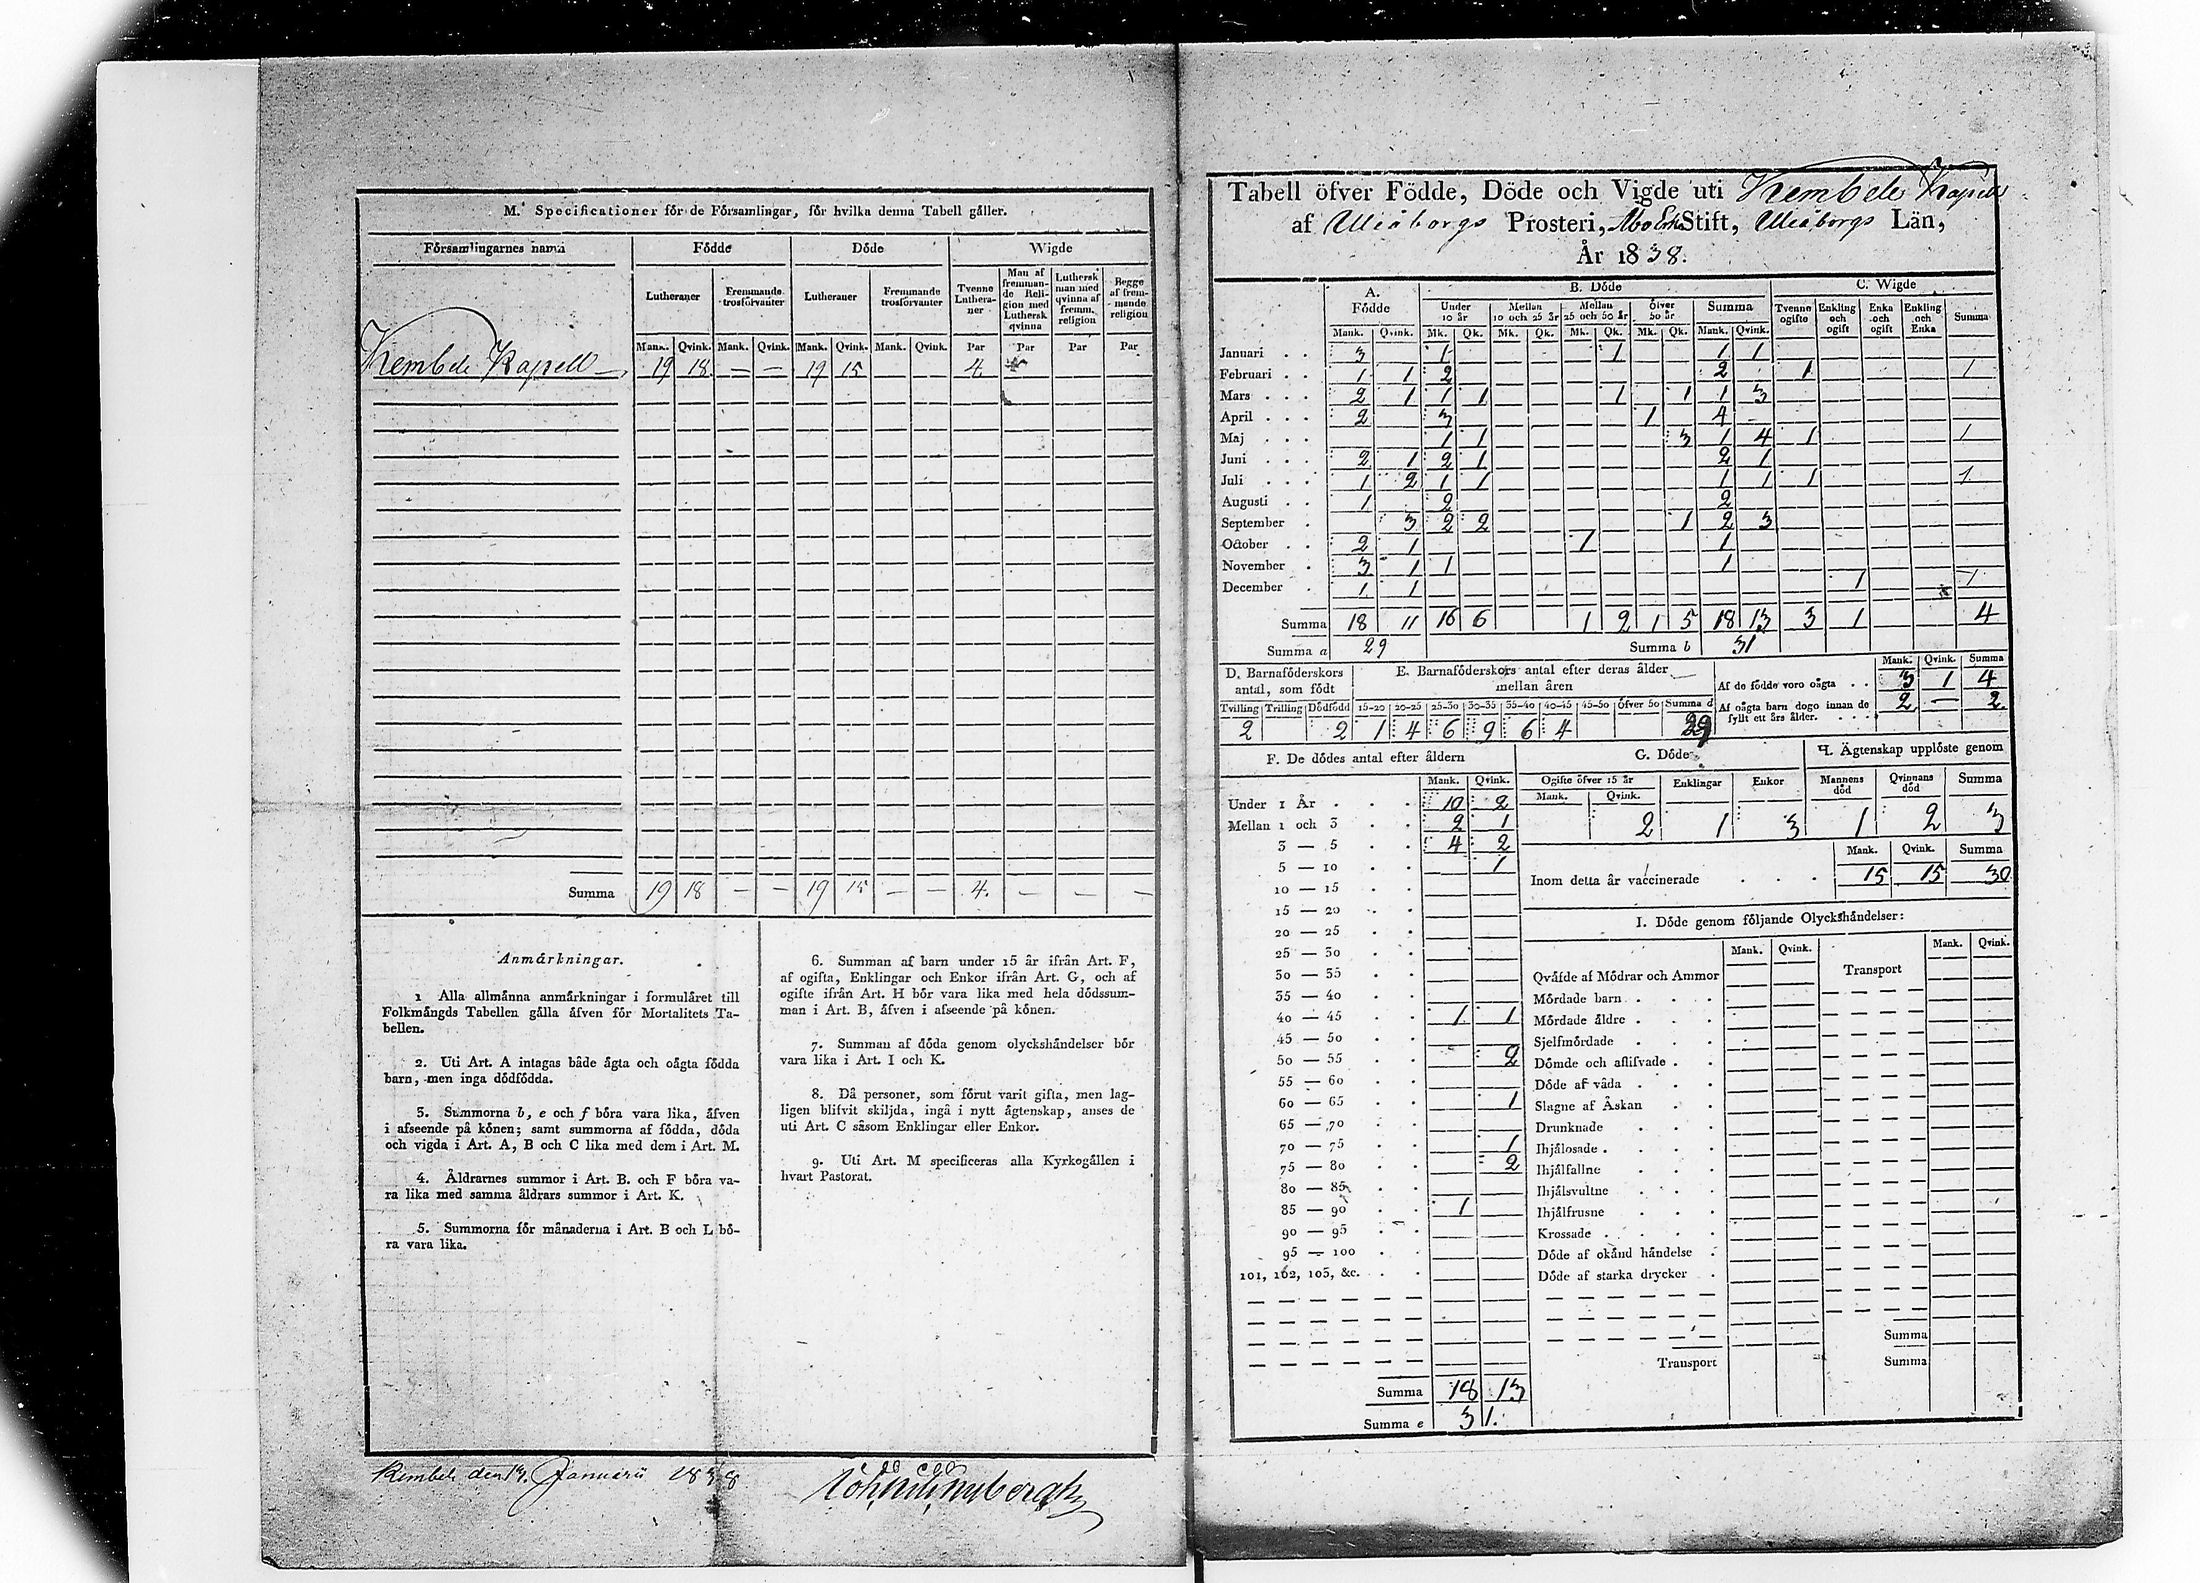 M. Specificationer för de Församlingar, för hvilka denna Tabell gäller.
Församlingarnes namn Födde Döde Wigde
Lutheraner Fremmande trosförvanter Lutheraner Fremmande trosförvanter Tvenne Lutheraner Man af fremmande Religion med Luthersk qvinna Luthersk man med qvinna af fremm. religion Begge af fremmande religion
Mank. Qvink. Mank. Qvink. Mank. Qvink. Mank. Qvink. Par Par Par Par
Kembele Kapell 19 18 — — 19 15 4
Summa 19 18 — — 19 15 — — 4. — — —
Anmärkningar.
1 Alla allmänna anmärkningar i formuläret till
Folkmängds Tabellen gälla äfven för Mortalitets Ta-
bellen.
2. Uti Art. A intagas både ägta och oägta födda
barn, men inga dödfödda.
3. Summorna b, e och f böra vara lika, äfven
i afseende på könen; samt summorna af födda, döda
och vigda i Art. A, B och C lika med dem i Art. M.
4. Åldrarnes summor i Art. B. och F böra va-
ra lika med samma åldrars summor i Art. K.
5. Summorna för månaderna i Art. B och L bö-
ra vara lika.
6. Summan af barn under 15 år ifrån Art. F,
af ogifta, Enklingar och Enkor ifrån Art. G, och af
ogifte ifrån Art. H bör vara lika med hela dödssum-
man i Art. B, äfven i afseende på könen.
7. Summan af döda genom olyckshändelser bör
vara lika i Art. I och K.
8. Då personer, som förut varit gifta, men lag-
ligen blifvit skiljda, ingå i nytt ägtenskap, anses de
uti Art. C såsom Enklingar eller Enkor.
9. Uti Art. M specificeras alla Kyrkogällen i
hvart Pastorat.
Kembele den 13. Januarii 1838
Tabell öfver Födde, Döde och Vigde uti Kembele Kapell
af Uleåborgs Prosteri, Åbo Erke Stift, Uleåborgs Län,
År 1838.
A. Födde B. Döde C. Wigde
Under 10 år Mellan 10 och 25 år Mellan 25 och 50 år öfver 50 år Summa Tvenne ogifte Enkling och ogift Enka och ogift Enkling och Enka Summa
Mank. Qvink. Mk. Qk. Mk. Qk. Mk. Qk. Mk. Qk. Mank. Qvink.
Januari 3 1 1 1 1
Februari 1 1 2 2 1 1
Mars 2 1 1 1 1 1 1 3
April 2 3 1 4
Maj 1 1 3 1 4 1 1
Juni 2 1 2 1 2 1
Juli 1 2 1 1 1 1 1 1
Augusti 1 2 2
September 3 2 2 1 2 3
October 2 1 1 1
November 3 1 1 1
December 1 1 1 1
Summa 18 11 16 6 1 2 1 5 18 13 3 1 4
Summa a 29 Summa b 31
D. Barnaföderskors antal, som födt
Tvilling Trilling Dödfödd
2 2
E. Barnaföderskors antal efter deras ålder mellan åren
15–20 20–25 25–30 30–35 35–40 40–45 45–50 öfver 50 Summa d
1 4 6 9 6 4 29
Mank. Qvink. Summa
Af de födde voro oägta 3 1 4
Af oägta barn dogo innan de fyllt ett års ålder. 2 — 2.
F. De dödes antal efter åldern
Mank. Qvink.
Under 1 År 10 2
Mellan 1 och 3 2 1
3 — 5 4 2
5 — 10 1
10 — 15
15 — 20
20 — 25
25 — 30
30 — 35
35 — 40
40 — 45 1 1
45 — 50
50 — 55 2
55 — 60
60 — 65 1
65 — 70
70 — 75 1
75 — 80 2
80 — 85
85 — 90 1
90 — 95
95 — 100
101, 102, 103, &c.
Summa 18 13
Summa e 31.
G. Döde
Ogifte öfver 15 år Enklingar Enkor
Mank. Qvink.
2 1 3
H. Ägtenskap upplöste genom
Mannens död Qvinnans död Summa
1 2 3
Mank. Qvink. Summa
Inom detta år vaccinerade 15 15 30
I. Döde genom följande Olyckshändelser:
Mank. Qvink. Mank. Qvink.
Qväfde af Mödrar och Ammor Transport
Mördade barn
Mördade äldre
Sjelfmördade
Dömde och aflifvade
Döde af våda
Slagne af Åskan
Drunknade
Ihjälosade
Ihjälfallne
Ihjälsvultne
Ihjälfrusne
Krossade
Döde af okänd händelse
Döde af starka drycker
Summa
Transport Summa